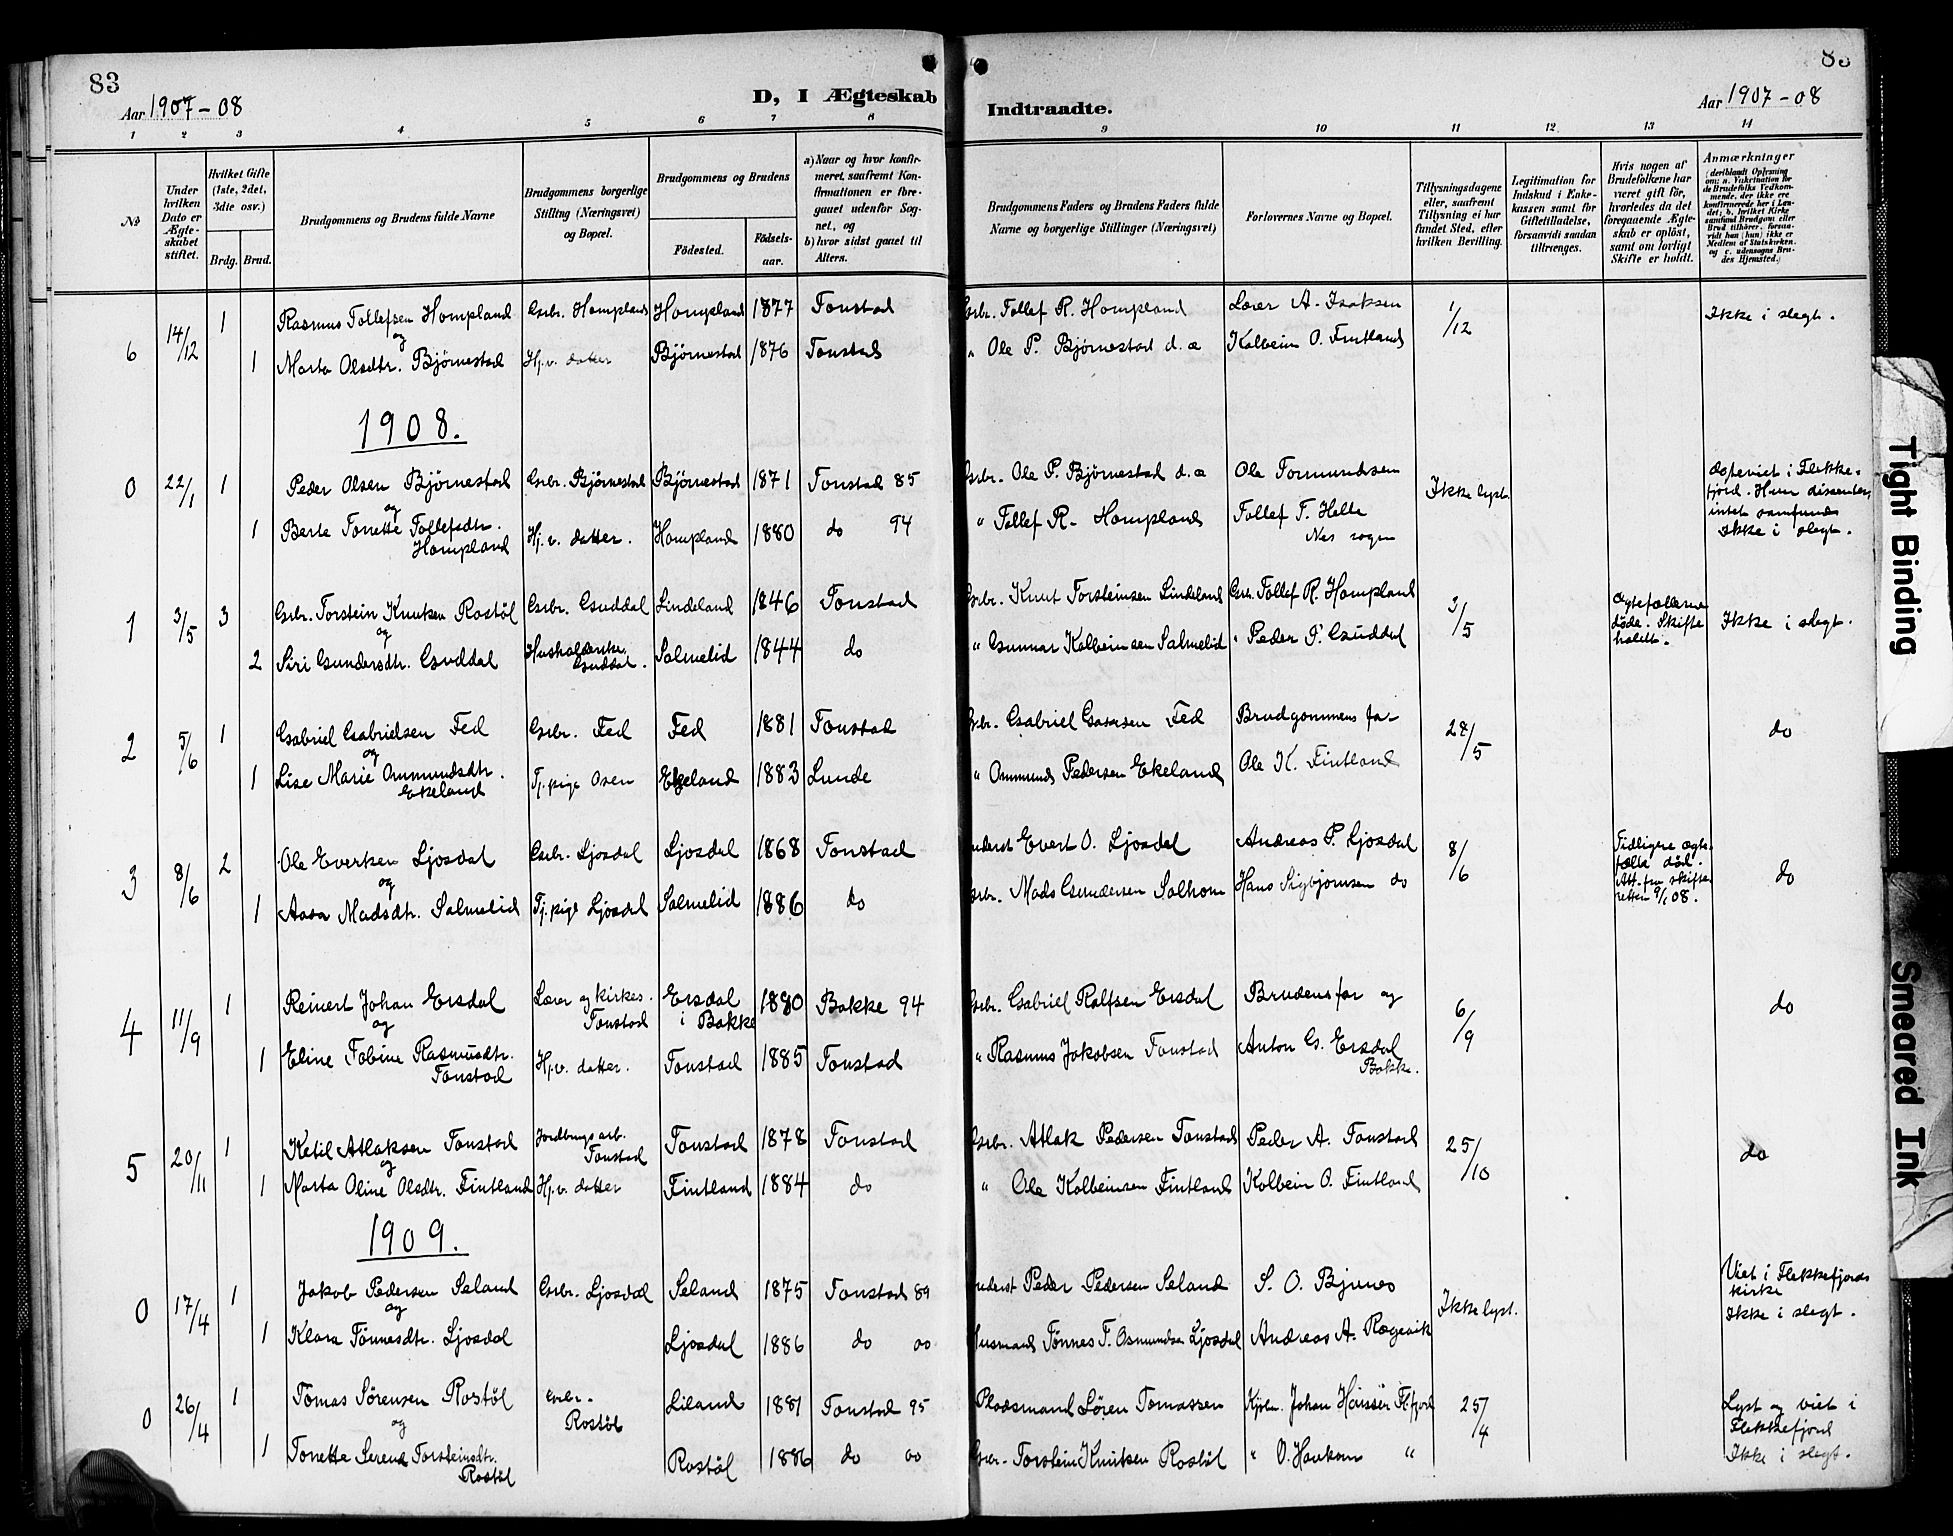 83
83
Aar 1907-08
D, I Ægteskab
Indtraadte.
Aar 1907-08
1 2 3 4 5 6 7 8 9 10 11 12 13 14
№
Under hvilken Dato er Ægteskabet stiftet.
Hvilket Gifte (1ste, 2det, 3die osv.)
Brdg. Brud.
Brudgommens og Brudens fulde Navne
Brudgommens borgerlige Stilling (Næringsvei) og Bopæl.
Brudgommens og Brudens
Födested.
Födselsaar.
a) Naar og hvor konfirmeret, saafremt Konfirmationen er foregaaet udenfor Sognet, og
b) hvor sidst gaaet til Alters.
Brudgommens Faders og Brudens Faders fulde Navne og borgerlige Stillinger (Næringsvei)
Forlovernes Navne og Bopæl.
Tillysningsdagene eller, saafremt Tillysning ei har fundet Sted, efter hvilken Bevilling.
Legitimation for Indskud i Enkekassen samt for Giftetilladelse, forsaavidt saadan tiltrænges.
Hvis nogen af Brudefolkene har været gift för, hvorledes da det foregaaende Ægteskab er oplöst, samt om lovligt Skifte er holdt.
Anmærkninger
6 14/12 1 Rasmus Tollefsen Hompland Gbr. Hompland Hompland 1877 Tonstad Gbr. Tollef R. Hompland Lærer A. Isaksen 1/12 Ikke i slegt.
og
1 Marta Olsdtr. Bjørnestad Hj.v. datter Bjørnestad 1876 Tonstad " Ole P. Bjørnestad d.æ Kolbein O. Fintland
1908.
0 22/1 1 Peder Olsen Bjørnestad Gbr. Bjørnestad Bjørnestad 1871 Tonstad 85 Gbr. Ole P. Bjørnestad d.æ Ole Tormundsen Ikke lyst. i Flekkefjord.
og
1 Berte Tonette Tollefsdtr. Hompland Hj.v. datter. Hompland 1880 do 94 " Tollef R. Hompland Tollef T. Helle Nes sogn Ikke i slegt.
1 3/5 3 Gbr. Torstein Knutsen Rostøl Gbr. Guddal Lindeland 1846 Tonstad Gbr. Knut Torsteinsen Lindeland Gbr. Tollef R. Hompland 3/5 Ægtefællerne døde. Skifte holdt. Ikke i slegt.
og
2 Siri Gundersdtr. Guddal Guddal. Salmelid 1844 do " Gunnar Kolbeinsen Salmelid " Peder P. Guddal
2 5/6 1 Gabriel Gabrielsen Fed Gbr. Fed Fed 1881 Tonstad Gbr. Gabriel Fed Brudgommens far 28/5 do
og
1 Lise Marie Ommundsdtr. Ekeland Tj.pige Osen Ekeland 1883 Lunde " Ommund Pedersen Ekeland Ole K. Fintland
3 8/6 2 Ole Evertsen Ljosdal Gbr. Ljosdal Ljosdal 1868 Tonstad Evert O. Ljosdal Andreas P. Ljosdal 8/6 Tidligere ægtefælle død. Att. fra skifteretten 9/1 08. do
og
1 Aasa Madsdtr. Salmelid Tj.pige Ljosdal Salmelid 1886 do Gbr. Mads Gundersen Salhom Hans Sigbjørnsen do
4 11/9 1 Reinert Johan Ersdal Lærer og kirkes. Tonstad Ersdal i Bakke 1880 Bakke 94 Gbr. Gabriel Rolfsen Ersdal Brudens far og 6/9 do
og
1 Eline Tobine Rasmusdtr. Tonstad Hj.v. datter. Tonstad 1885 Tonstad " Rasmus Jakobsen Tonstad Anton G. Ersdal Bakke.
5 20/11 1 Ketil Atlaksen Tonstad Jordbrugsarb. Tonstad Tonstad 1878 Tonstad Gbr. Atlak Pedersen Tonstad Peder A. Tonstad 25/10 do
og
1 Marta Oline Olsdtr. Fintland Hj.v. datter Fintland 1884 do " Ole Kolbeinsen Fintland Kolbein O. Fintland
1909.
0 17/4 1 Jakob Pedersen Seland Gbr. Ljosdal Seland 1875 Tonstad 89 Peder Pedersen Seland S. O. Bjunes Ikke lyst. Viet i Flekkefjords kirke Ikke i slegt.
og
1 Klara Tønnesdtr. Ljosdal Ljosdal 1886 do 00 Husmand Tønnes T. Osmundsen Ljosdal Andreas A. Rægevik
0 26/4 1 Tomas Sørensen Rostøl Gbr. Rostøl Liland 1881 Tonstad 95 Pladsmand Søren Tomassen Kjøbm. Johan 25/4 Lyst og viet i Flekkefjord
og
1 Tonette Serena Torsteinsdtr. Rostøl Rostøl 1886 do 00 Gbr. Torstein Knutsen Rostøl " O. Haukom " Ikke i slegt.
Tight Binding
Smeared Ink